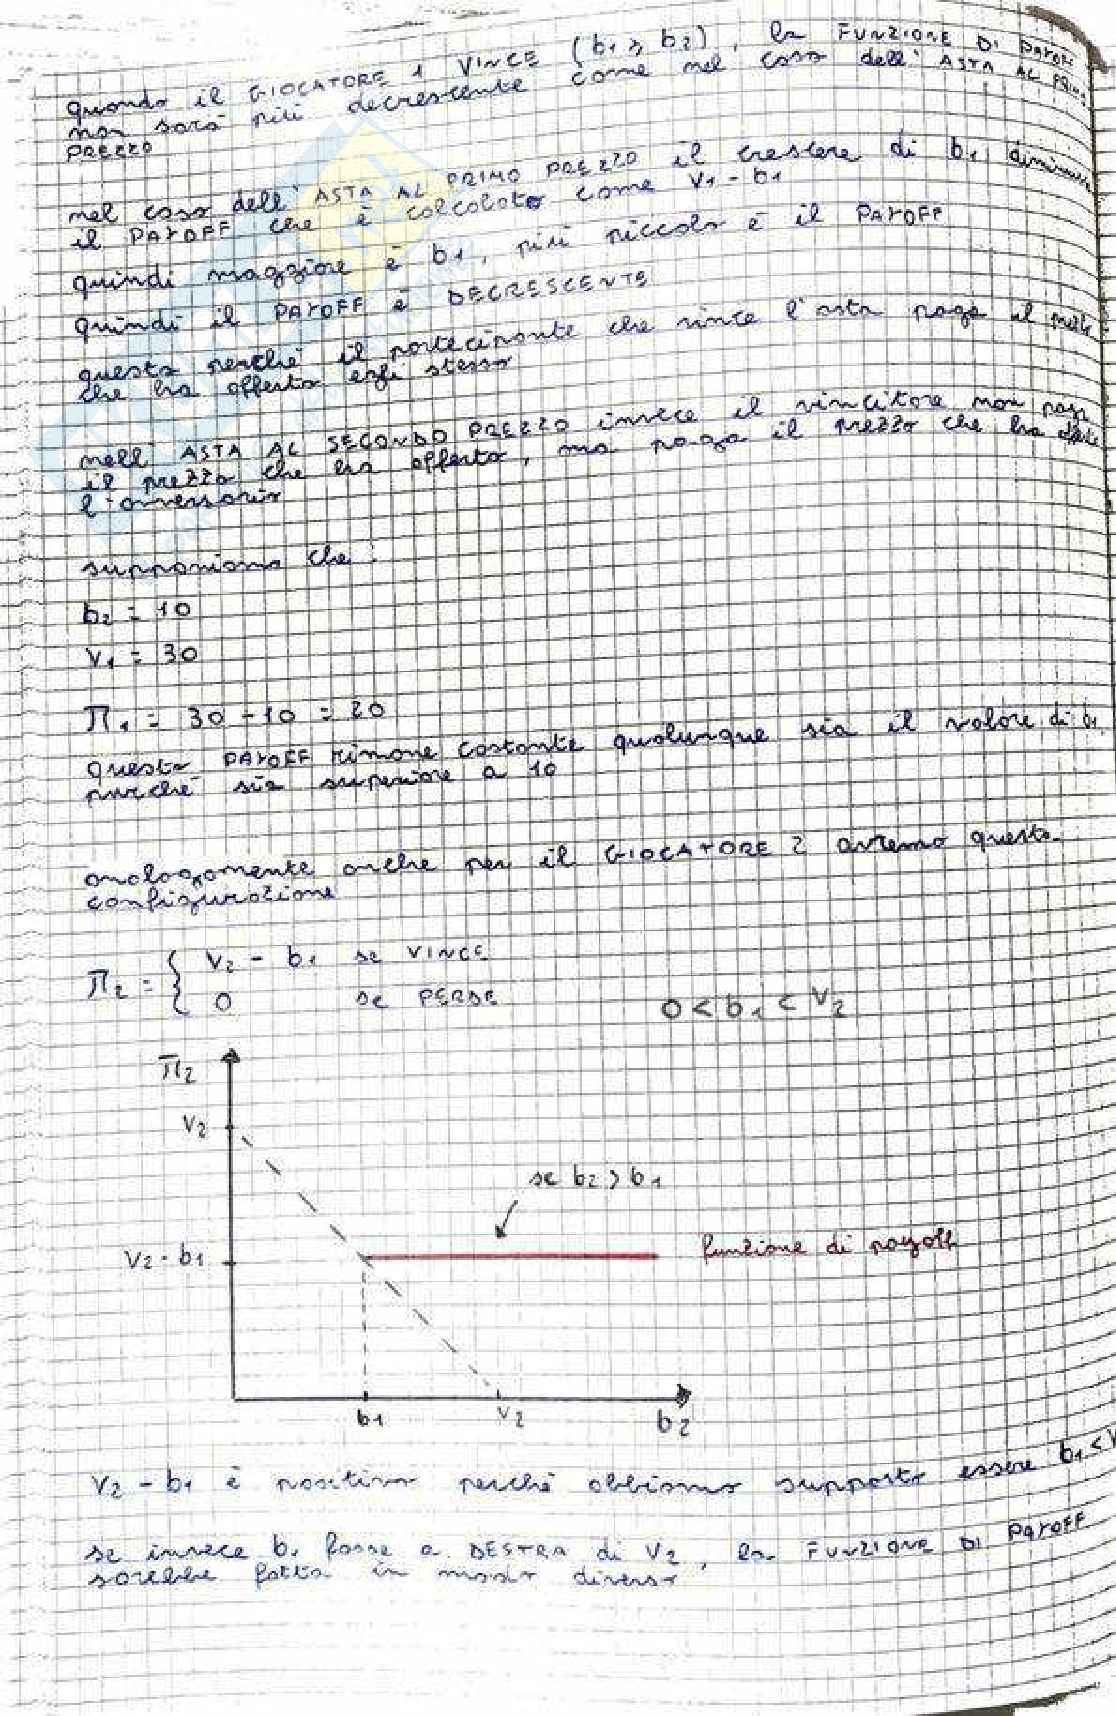 quando il GIOCATORE 1 VINCE (b1 > b2), la FUNZIONE DI PAYOFF
non sarà più decrescente come nel caso dell'ASTA AL PRIMO
PREZZO
nel caso dell'ASTA AL PRIMO PREZZO il crescere di b1 diminuisce
il PAYOFF che è calcolato come V1 - b1
quindi maggiore è b1, più piccolo è il PAYOFF
quindi il PAYOFF è DECRESCENTE
questo perché il partecipante che vince l'asta paga il
che ha offerto egli stesso
nell'ASTA AL SECONDO PREZZO invece il vincitore non paga
il prezzo che ha offerto, ma paga il prezzo che ha
l'avversario
supponiamo che:
b2 = 10
V1 = 30
π1 = 30 - 10 = 20
questo PAYOFF rimane costante qualunque sia il valore di b1
purché sia superiore a 10
analogamente anche per il GIOCATORE 2 avremo questa
configurazione
π2 = { V2 - b1 se VINCE
0 se PERDE
0 < b1 < V2
π2
V2
se b2 > b1
V2 - b1
funzione di payoff
b1
V2
b2
V2 - b1 è positivo perché abbiamo supposto essere b1 < V
se invece b1 fosse a DESTRA di V2, la FUNZIONE DI PAYOFF
sarebbe fatta in modo diverso